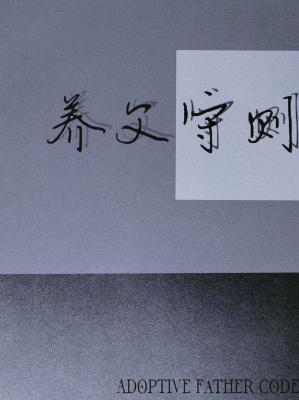 养父守则
ADOPTIVE FATHER CODE